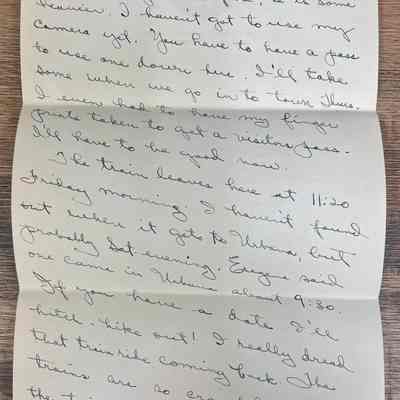 heavier. I haven't got to use my
camera yet. You have to have a pass
to use one down here. I'll take
some when we go in to town Thurs.
I even had to have my finger
prints taken to get a visitors pass.
I'll have to be good now.
The train leaves here at 11:20
Friday morning. I haven't found
out when it gets to Urbana, but
probably Sat. evening. Eugene said
one came in Urbana about 9:30.
If you have a date I'll
hitch-hike out! I really dread
that train ride coming back. The
trains are so